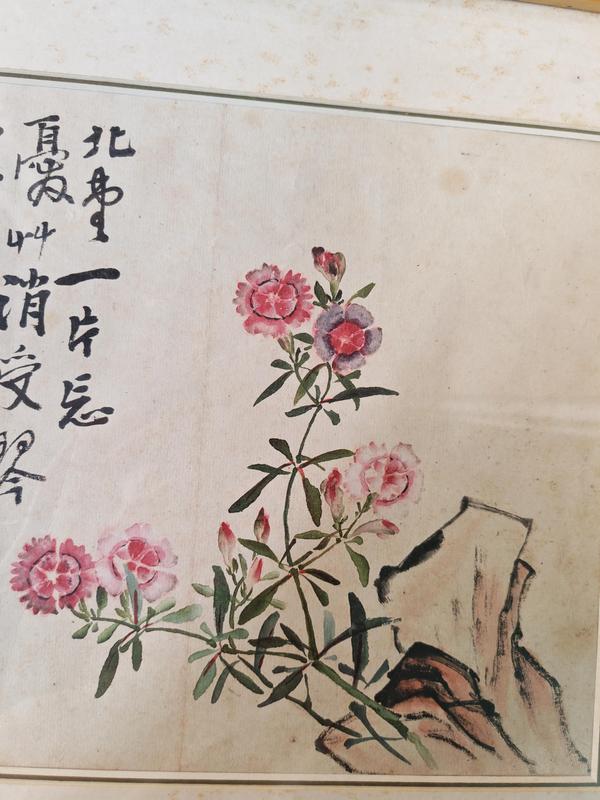 北堂一片忘
憂艸消受琴